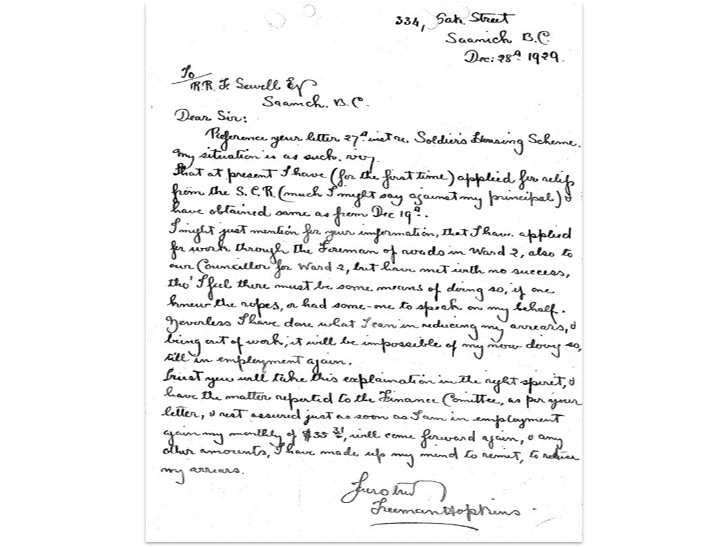 334, Oak Street
Saanich B.C.
Dec: 28th 1929.
To
R.R. F. Sewell Esq
Saanich. B.C.
Dear Sir:
Reference your letter 27th inst re. Soldier's Housing Scheme.
My situation is as such.
that at present I have (for the first time) applied for relief
from the S.C.R. (much I might say against my principal) &
have obtained same as from Dec 19th.
I might just mention for your information, that I have applied
for work through the Foreman of roads in Ward 2, also to
our Councillor for Ward 2, but have met with no success,
tho' I feel there must be some means of doing so, if one
knew the ropes, or had some-one to speak on my behalf.
Neverless I have done what I can in reducing my arrears, &
being out of work, it will be impossible of my now doing so,
till in employment again.
Trust you will take this explaination in the right spirit, &
have the matter reported to the Finance Comittee, as per your
letter, & rest assured just as soon as I am in employment
again my monthly of $35 31, will come forward again, & any
other amounts, I have made up my mind to remit, to reduce
my arrears.
Freeman Hopkins